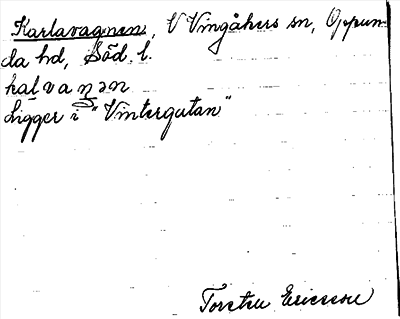 Karlavagnen, V Vingåkers sn, Oppun-
da hd, Söd. l.
kaḷvaŋən
Ligger i "Vintergatan"
Torsten Ericsson